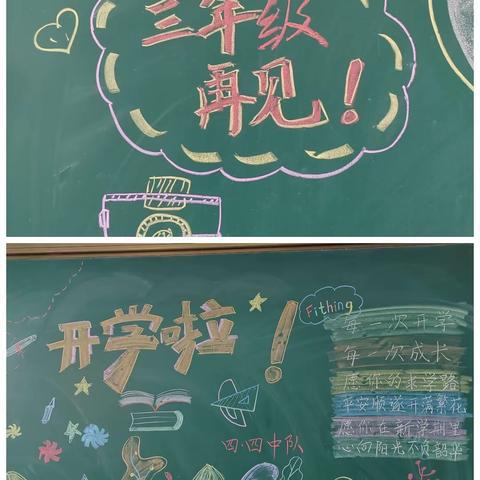 三年级
再见！
开学啦！
Fithing
每一次开学
每一次成长
愿你的求学路
平安顺遂开满繁花
愿你在新学期里
心向阳光不负韶华
四·四中队